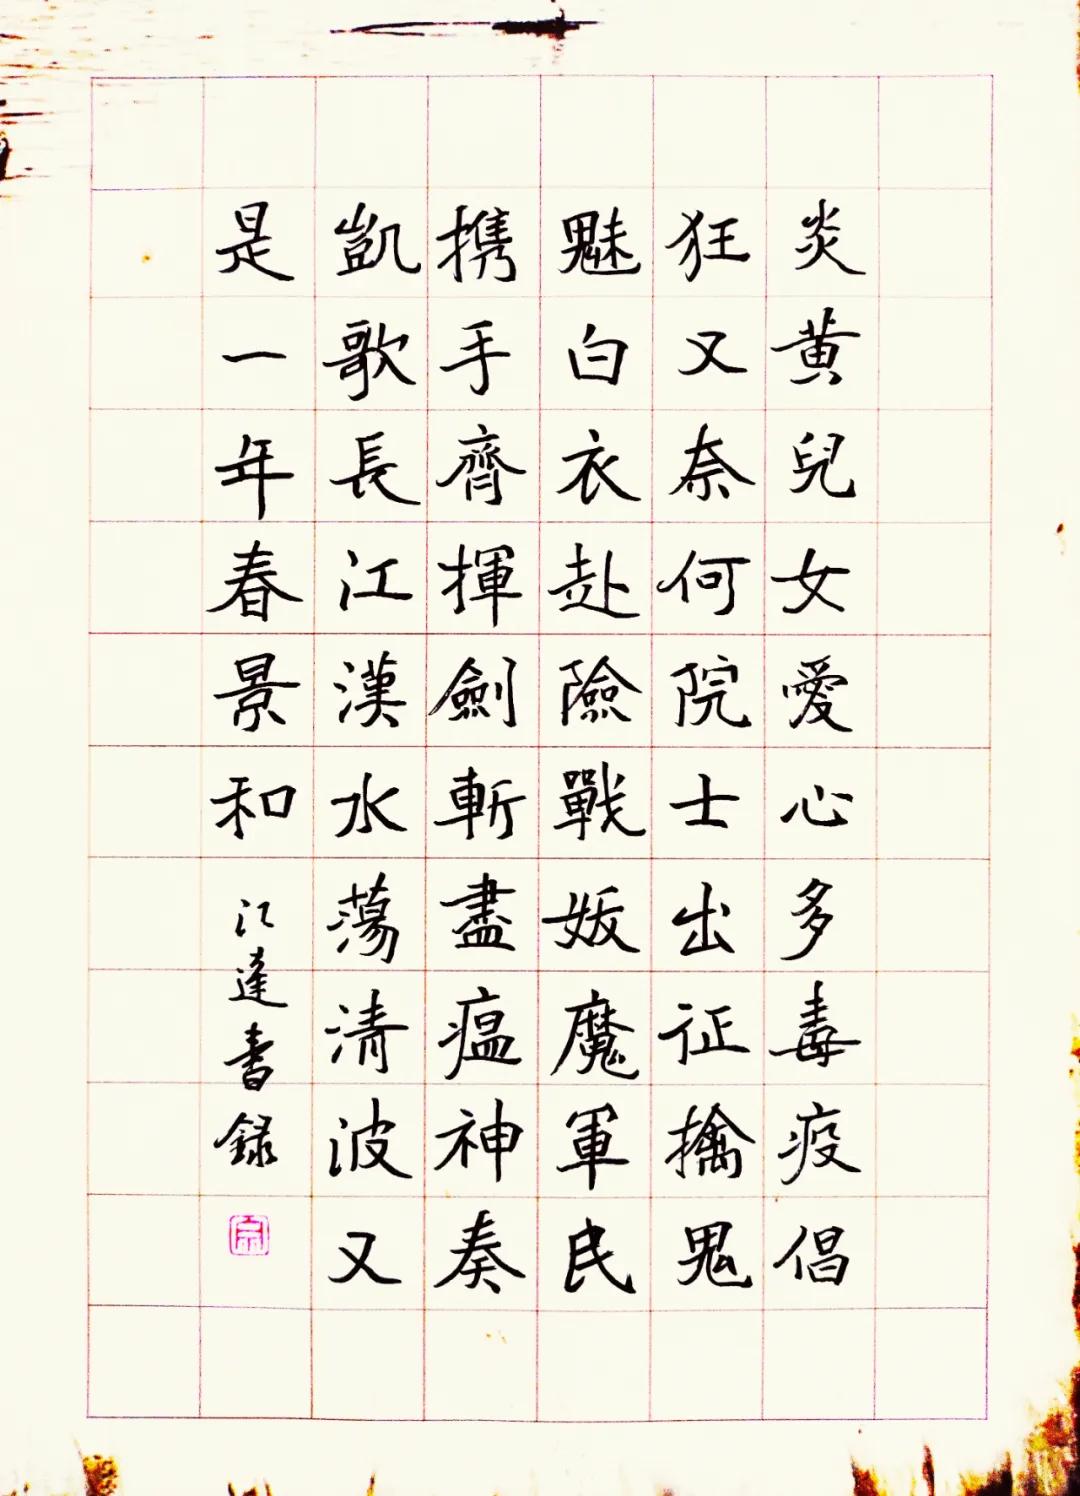 炎黄兒女愛心多毒疫倡
狂又奈何院士出征擒鬼
魅白衣赴險戰妭魔軍民
携手齊揮劍斬盡瘟神奏
凱歌長江漢水蕩清波又
是一年春景和
江達書録